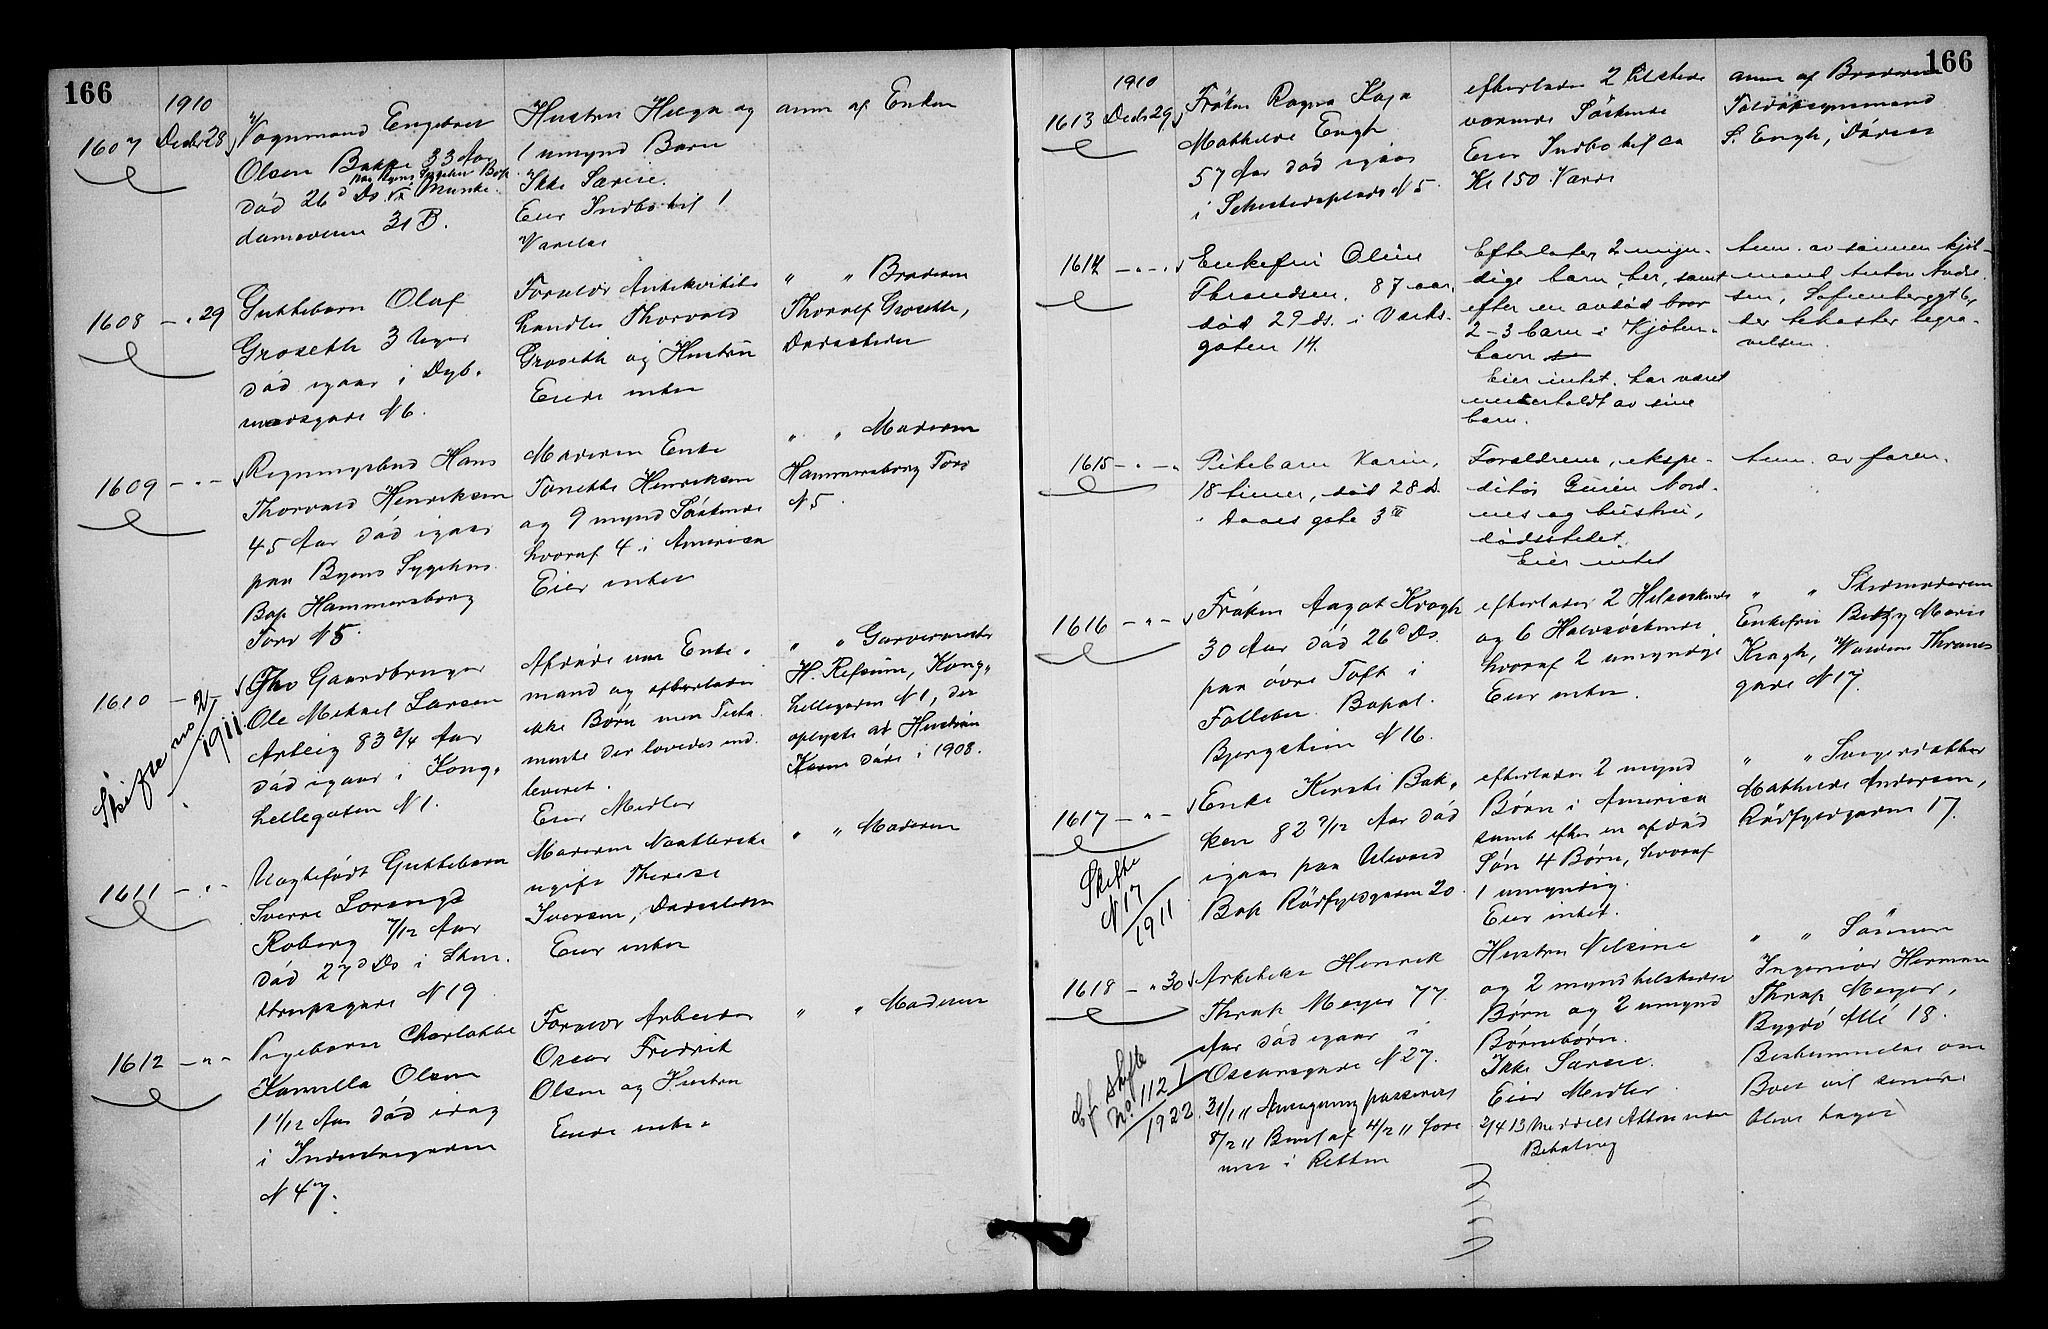 166
1910
1607 Decbr 28
Vognmand Engebret
Olsen Bakke 33 Aar
paa Byens Sygehus Bop
død 26d Ds Munke-
damsveien 31 B.
Hustru Helga og
1 umynd Barn
Ikke Særeie.
Eier Indbo til 1
Værelse
anm af Enken
1608 - " 29
Guttebarn Olaf
Groseth 3 Uger
død igaar i Dyb-
wadsgade N 6.
Forældr Antikvitets
handler Thorvald
Groseth og Hustru
Eiede intet
" " Broderen
Thoralf Groseth,
Dødsstedet
1609 - " -
Regningsbud Hans
Thorvald Henriksen
45 Aar død igaar
paa Byens Sygehus
Bop Hammersborg
Torv N 5.
Moderen Enke
Tonette Henriksen
og 9 mynd Søskende
hvoraf 4 i America
Eier intet
" " Moderen
Hammersborg Torv
N 5.
1610 -
Skifte no 2/1911
Fhv Gaardbruger
Ole Mikael Larsen
Arteig 83 3/4 Aar
død igaar i Kong-
hellegaten N 1.
Afdøde var Enke-
mand og efterlader
ikke Børn men Testa-
mente der lovedes ind-
leveret.
Eier Midler
" " Garvermester
H. Refsum, Kong-
hellegaden N 1, der
oplyste at Hustruen
Karen døde i 1908.
1611 - " -
Uægtefødt Guttebarn
Sverre Lorang
Roberg 7/12 Aar
død 27d Ds i Sten-
strupsgade N 19
Moderen Næatterske
ugift Therese
Iversen, Dødsstedet
Eier intet
" " Moderen
1612 - " -
Pigebarn Charlotte
Kamilla Olsen
1 1/12 Aar død idag
i Industrigaden
N 47.
Forældr Arbeider
Oscar Fredrik
Olsen og Hustru
Eiede intet.
" " Moderen
166
1910
1613 Decbr 29
Frøken Ragna Kaja
Mathilde Engh
57 Aar død igaar
i Schwesterplads N 5.
efterlader 2 tilstede
værende Søskende
Eier Indbo til ca
Kr 150 Værdi
anm af Broderen
Toldopsynsmand
S. Engh, Døren
1614 - " -
Enkefru Oline
Thrandsen, 87 aar,
død 29 ds. i Værks-
gaten 14.
Efterlater 2 myn-
dige barn her, samt
efter en avdød bror
2-3 barn i Kjøben-
havn
Eier intet. har været
underholdt av sine
barn.
Anm. av sønnen kjøb-
mand Anton Andre-
sen, Sofienberggt 6,
der bekoster begra-
velsen.
1615 - " -
Pikebarn Karin,
18 timer, død 28 ds.
i Daas gate 3 III
Forældrene, ekspe-
ditør Nord-
nes og hustru,
dødsstedet.
Eier intet
Anm. av faren.
1616 - " -
Frøken Aagot Kragh
30 Aar død 26d Ds.
paa øvre Toft i
Follebu Bopæl.
Bjergstien N 16.
efterlader 2 Helsøskende
og 6 Halvsøskende
hvoraf 2 umyndige
Eier intet.
" " Stedmoderen
Enkefru Betzy Marie
Kragh, Waldem Thranes
gade N 17.
1617 - " -
Skifte
N 17/1911
Enke Kersti Bak-
ken 82 7/12 Aar død
igaar paa Ullevold
Bop Rødfyldgaden 20.
efterlader 2 mynd
Børn i America
samt efter en afdød
Søn 4 Børn, hvoraf
1 umyndig.
Eier intet.
" " Svigerdatter
Mathilde Andersen,
Rødfyldgaden 17.
1618 - " 30
Cf. Skifte
No 112 I/1922.
Arkitekt Henrik
Thrap Meyer 77
Aar død igaar i
Oscarsgade N 27.
31/1 11 Anvisning passeres
8/2 11 Bevil af 4/2 11 fore
vist i Retten
Hustru Nilsine
og 2 mynd helstedr
Børn og 2 umynd
Børnebørn.
Ikke Særeie.
Eier Midler.
3/4 13 Meddelt Attest uden
Betaling
" " Sønnen
Ingeniør Herman
Thrap Meyer,
Bygdø Allé 18.
Bestemmelse om
Boet vil senere
blive tagen